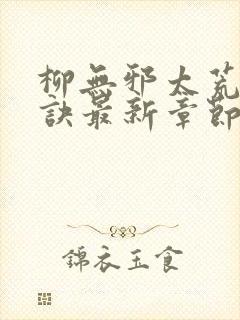 柳無邪太荒
訣最新章節
錦衣玉食